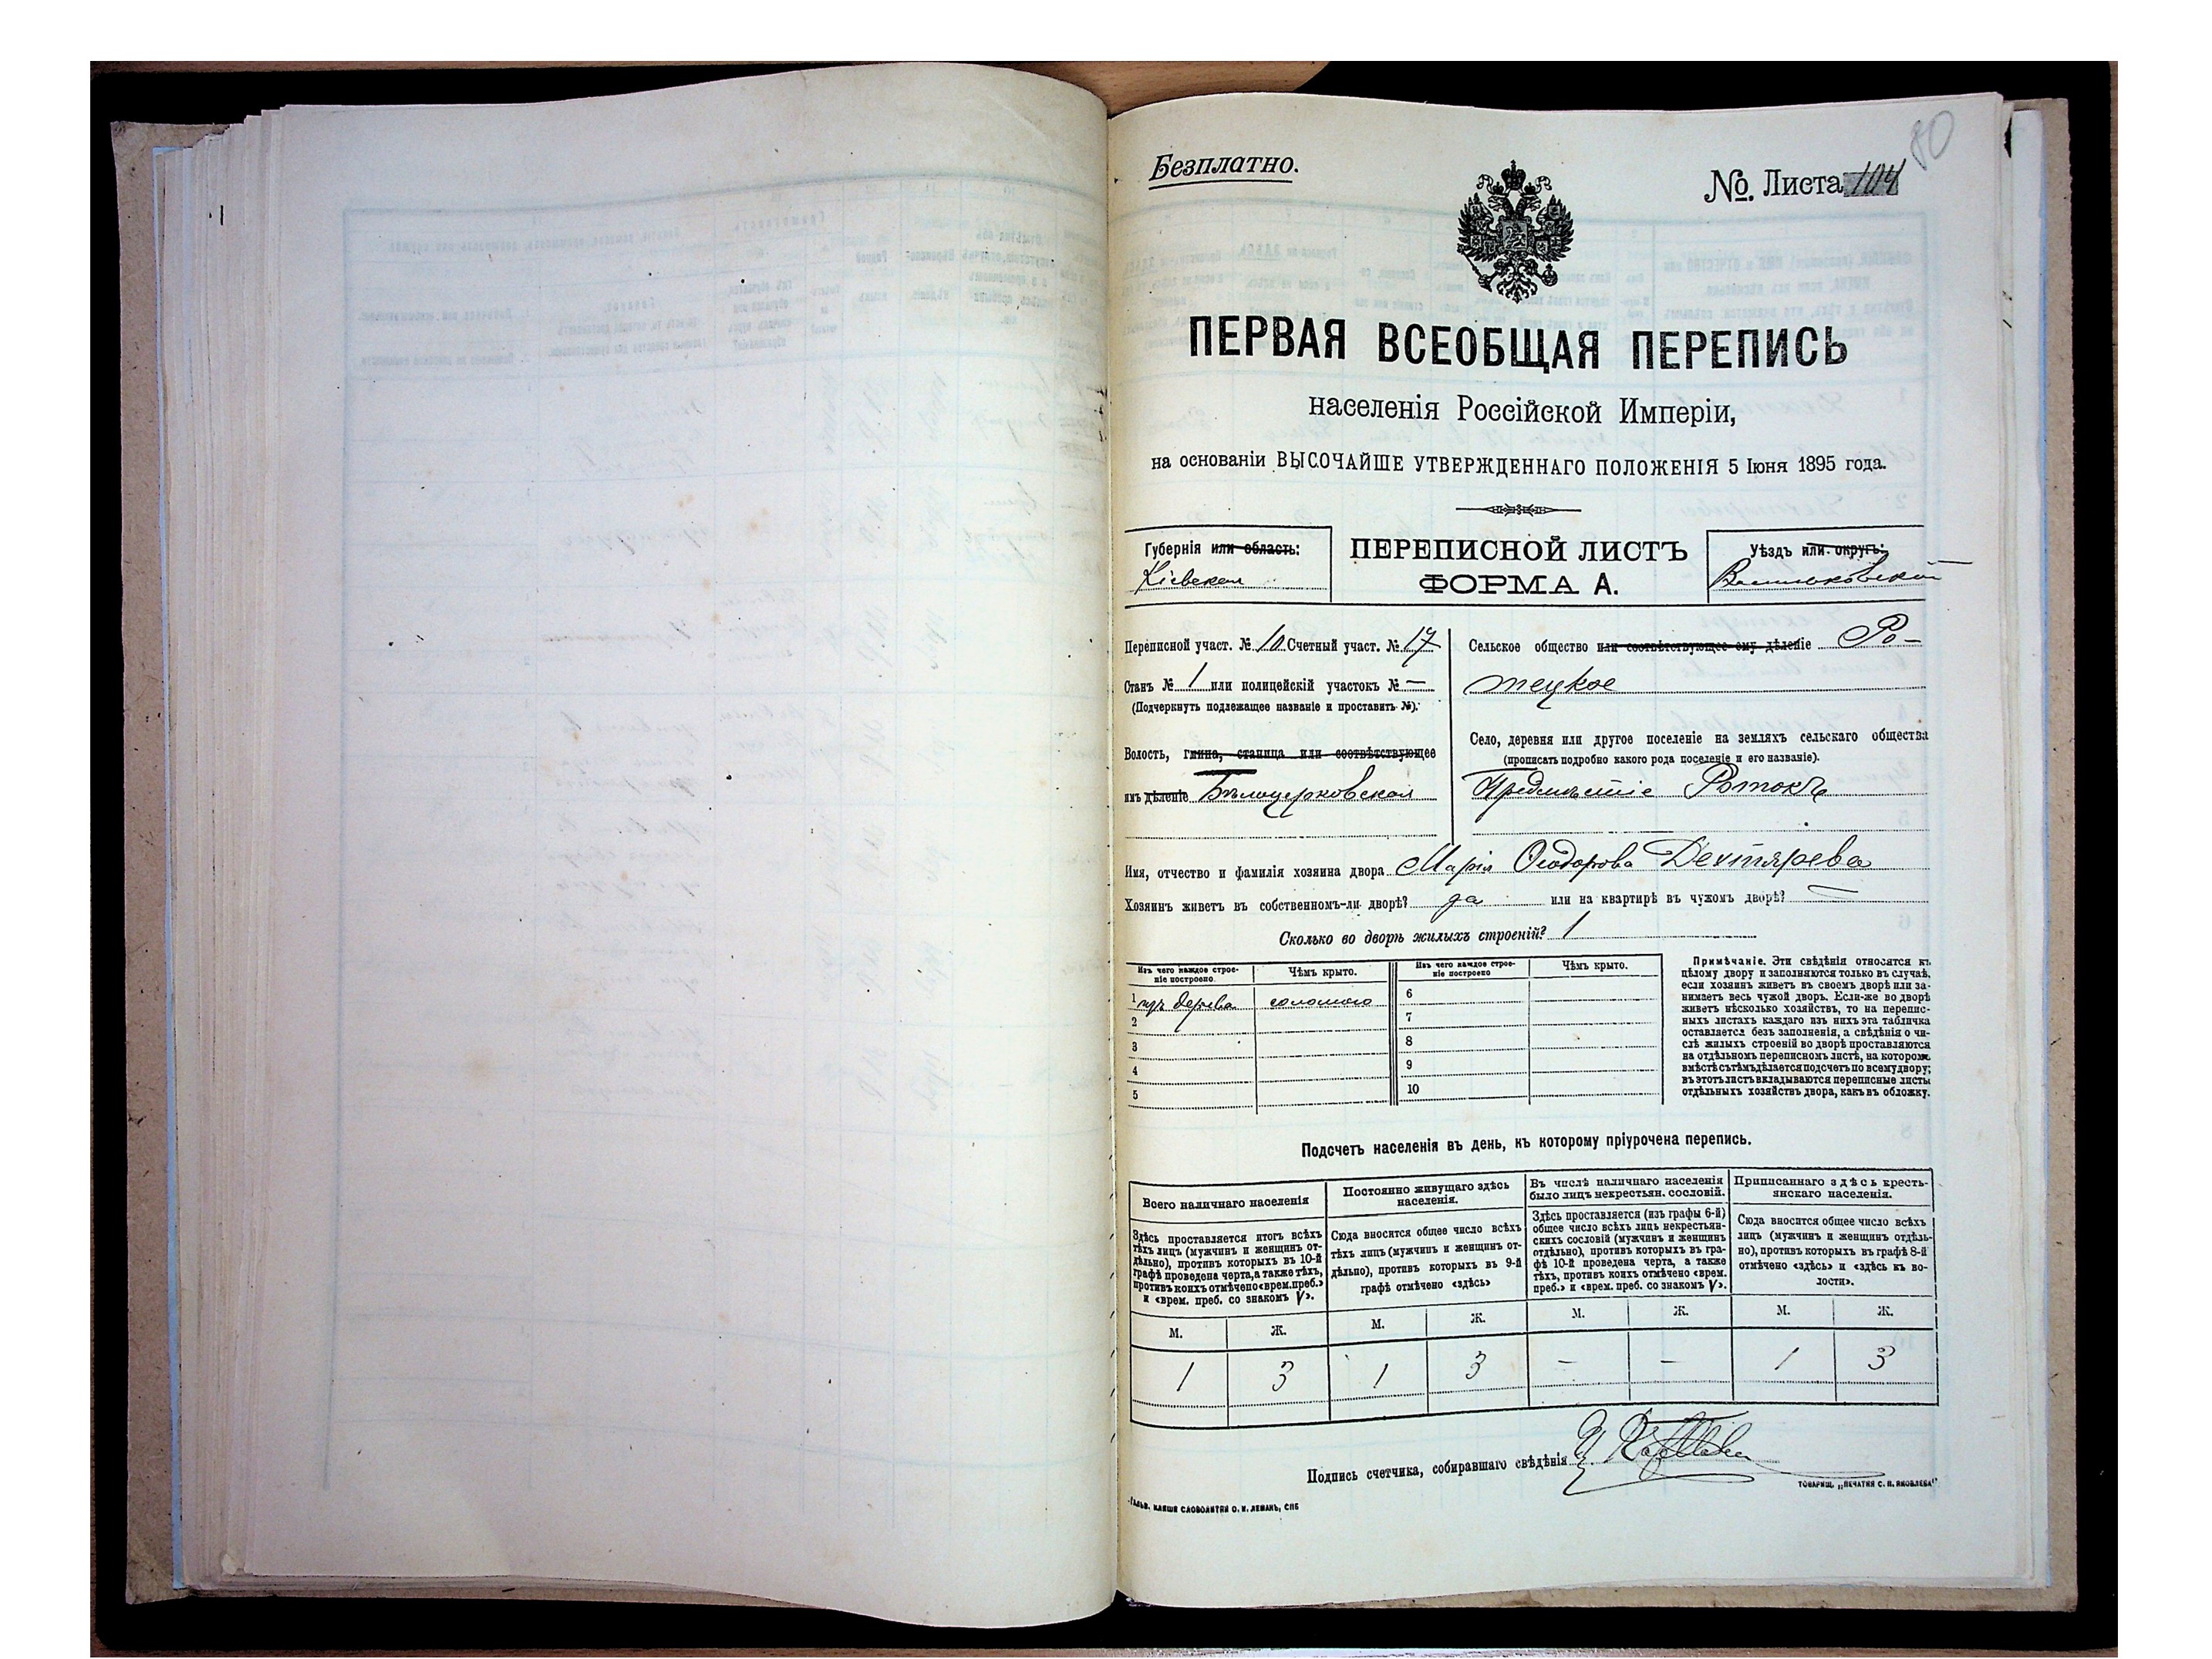 80
Безплатно.
№. Листа 104
ПЕРВАЯ ВСЕОБЩАЯ ПЕРЕПИСЬ
населенія Россійской Имперіи,
на основаніи ВЫСОЧАЙШЕ УТВЕРЖДЕННАГО ПОЛОЖЕНІЯ 5 Іюня 1895 года.
Губернія или область:
Кіевская
ПЕРЕПИСНОЙ ЛИСТЪ
ФОРМА А.
Уѣздъ или округъ:
Васильковскій
Переписной участ. № 10 Счетный участ. № 17
Станъ № 1 или полицейскій участокъ № —
(Подчеркнуть подлежащее названіе и проставить №).
Волость, гмина, станица или соотвѣтствующее
имъ дѣленіе Бѣлоцерковская
Сельское общество или соотвѣтствующее ему дѣленіе Ро-
тецкое
Село, деревня или другое поселеніе на земляхъ сельскаго общества
(прописать подробно какого рода поселеніе и его названіе).
Предмѣстіе Ротокъ
Имя, отчество и фамилія хозяина двора Марія Ѳеодорова Дехтярева
Хозяинъ живетъ въ собственномъ-ли дворѣ? да или на квартирѣ въ чужомъ дворѣ? —
Сколько во дворѣ жилыхъ строеній? 1
Изъ чего каждое строе-
ніе построено.
Чѣмъ крыто.
Изъ чего каждое строе-
ніе построено
Чѣмъ крыто.
1 изъ дерева соломою 6
2 7
3 8
4 9
5 10
Примѣчаніе. Эти свѣдѣнія относятся къ
цѣлому двору и заполняются только въ случаѣ,
если хозяинъ живетъ въ своемъ дворѣ или за-
нимаетъ весь чужой дворъ. Если-же во дворѣ
живетъ нѣсколько хозяйствъ, то на перепис-
ныхъ листахъ каждаго изъ нихъ эта табличка
оставляется безъ заполненія, а свѣдѣнія о чи-
слѣ жилыхъ строеній во дворѣ проставляются
на отдѣльномъ переписномъ листѣ, на которомъ
вмѣстѣ съ тѣмъ дѣлается подсчетъ по всему двору;
въ этотъ листъ вкладываются переписные листы
отдѣльныхъ хозяйствъ двора, какъ въ обложку.
Подсчетъ населенія въ день, къ которому пріурочена перепись.
Всего наличнаго населенія
Здѣсь проставляется итогъ всѣхъ
тѣхъ лицъ (мужчинъ и женщинъ от-
дѣльно), противъ которыхъ въ 10-й
графѣ проведена черта, а также тѣхъ,
противъ коихъ отмѣчено «врем. преб.»
и «врем. преб. со знакомъ V».
Постоянно живущаго здѣсь
населенія.
Сюда вносится общее число всѣхъ
тѣхъ лицъ (мужчинъ и женщинъ от-
дѣльно), противъ которыхъ въ 9-й
графѣ отмѣчено «здѣсь»
Въ числѣ наличнаго населенія
было лицъ некрестьян. сословій.
Здѣсь проставляется (изъ графы 6-й)
общее число всѣхъ лицъ некрестьян-
скихъ сословій (мужчинъ и женщинъ
отдѣльно), противъ которыхъ въ гра-
фѣ 10-й проведена черта, а также
тѣхъ, противъ коихъ отмѣчено «врем.
преб.» и «врем. преб. со знакомъ V».
Приписаннаго здѣсь кресть-
янскаго населенія.
Сюда вносится общее число всѣхъ
лицъ (мужчинъ и женщинъ отдѣль-
но), противъ которыхъ въ графѣ 8-й
отмѣчено «здѣсь» и «здѣсь къ во-
лости».
М. Ж. М. Ж. М. Ж. М. Ж.
1 3 1 3 — — 1 3
Подпись счетчика, собиравшаго свѣдѣнія
ГАЛЬВ. КЛИШЕ СЛОВОЛИТНИ О. И. ЛЕМАНЪ, СПБ
ТОВАРИЩ. „ПЕЧАТНЯ С. П. ЯКОВЛЕВА"